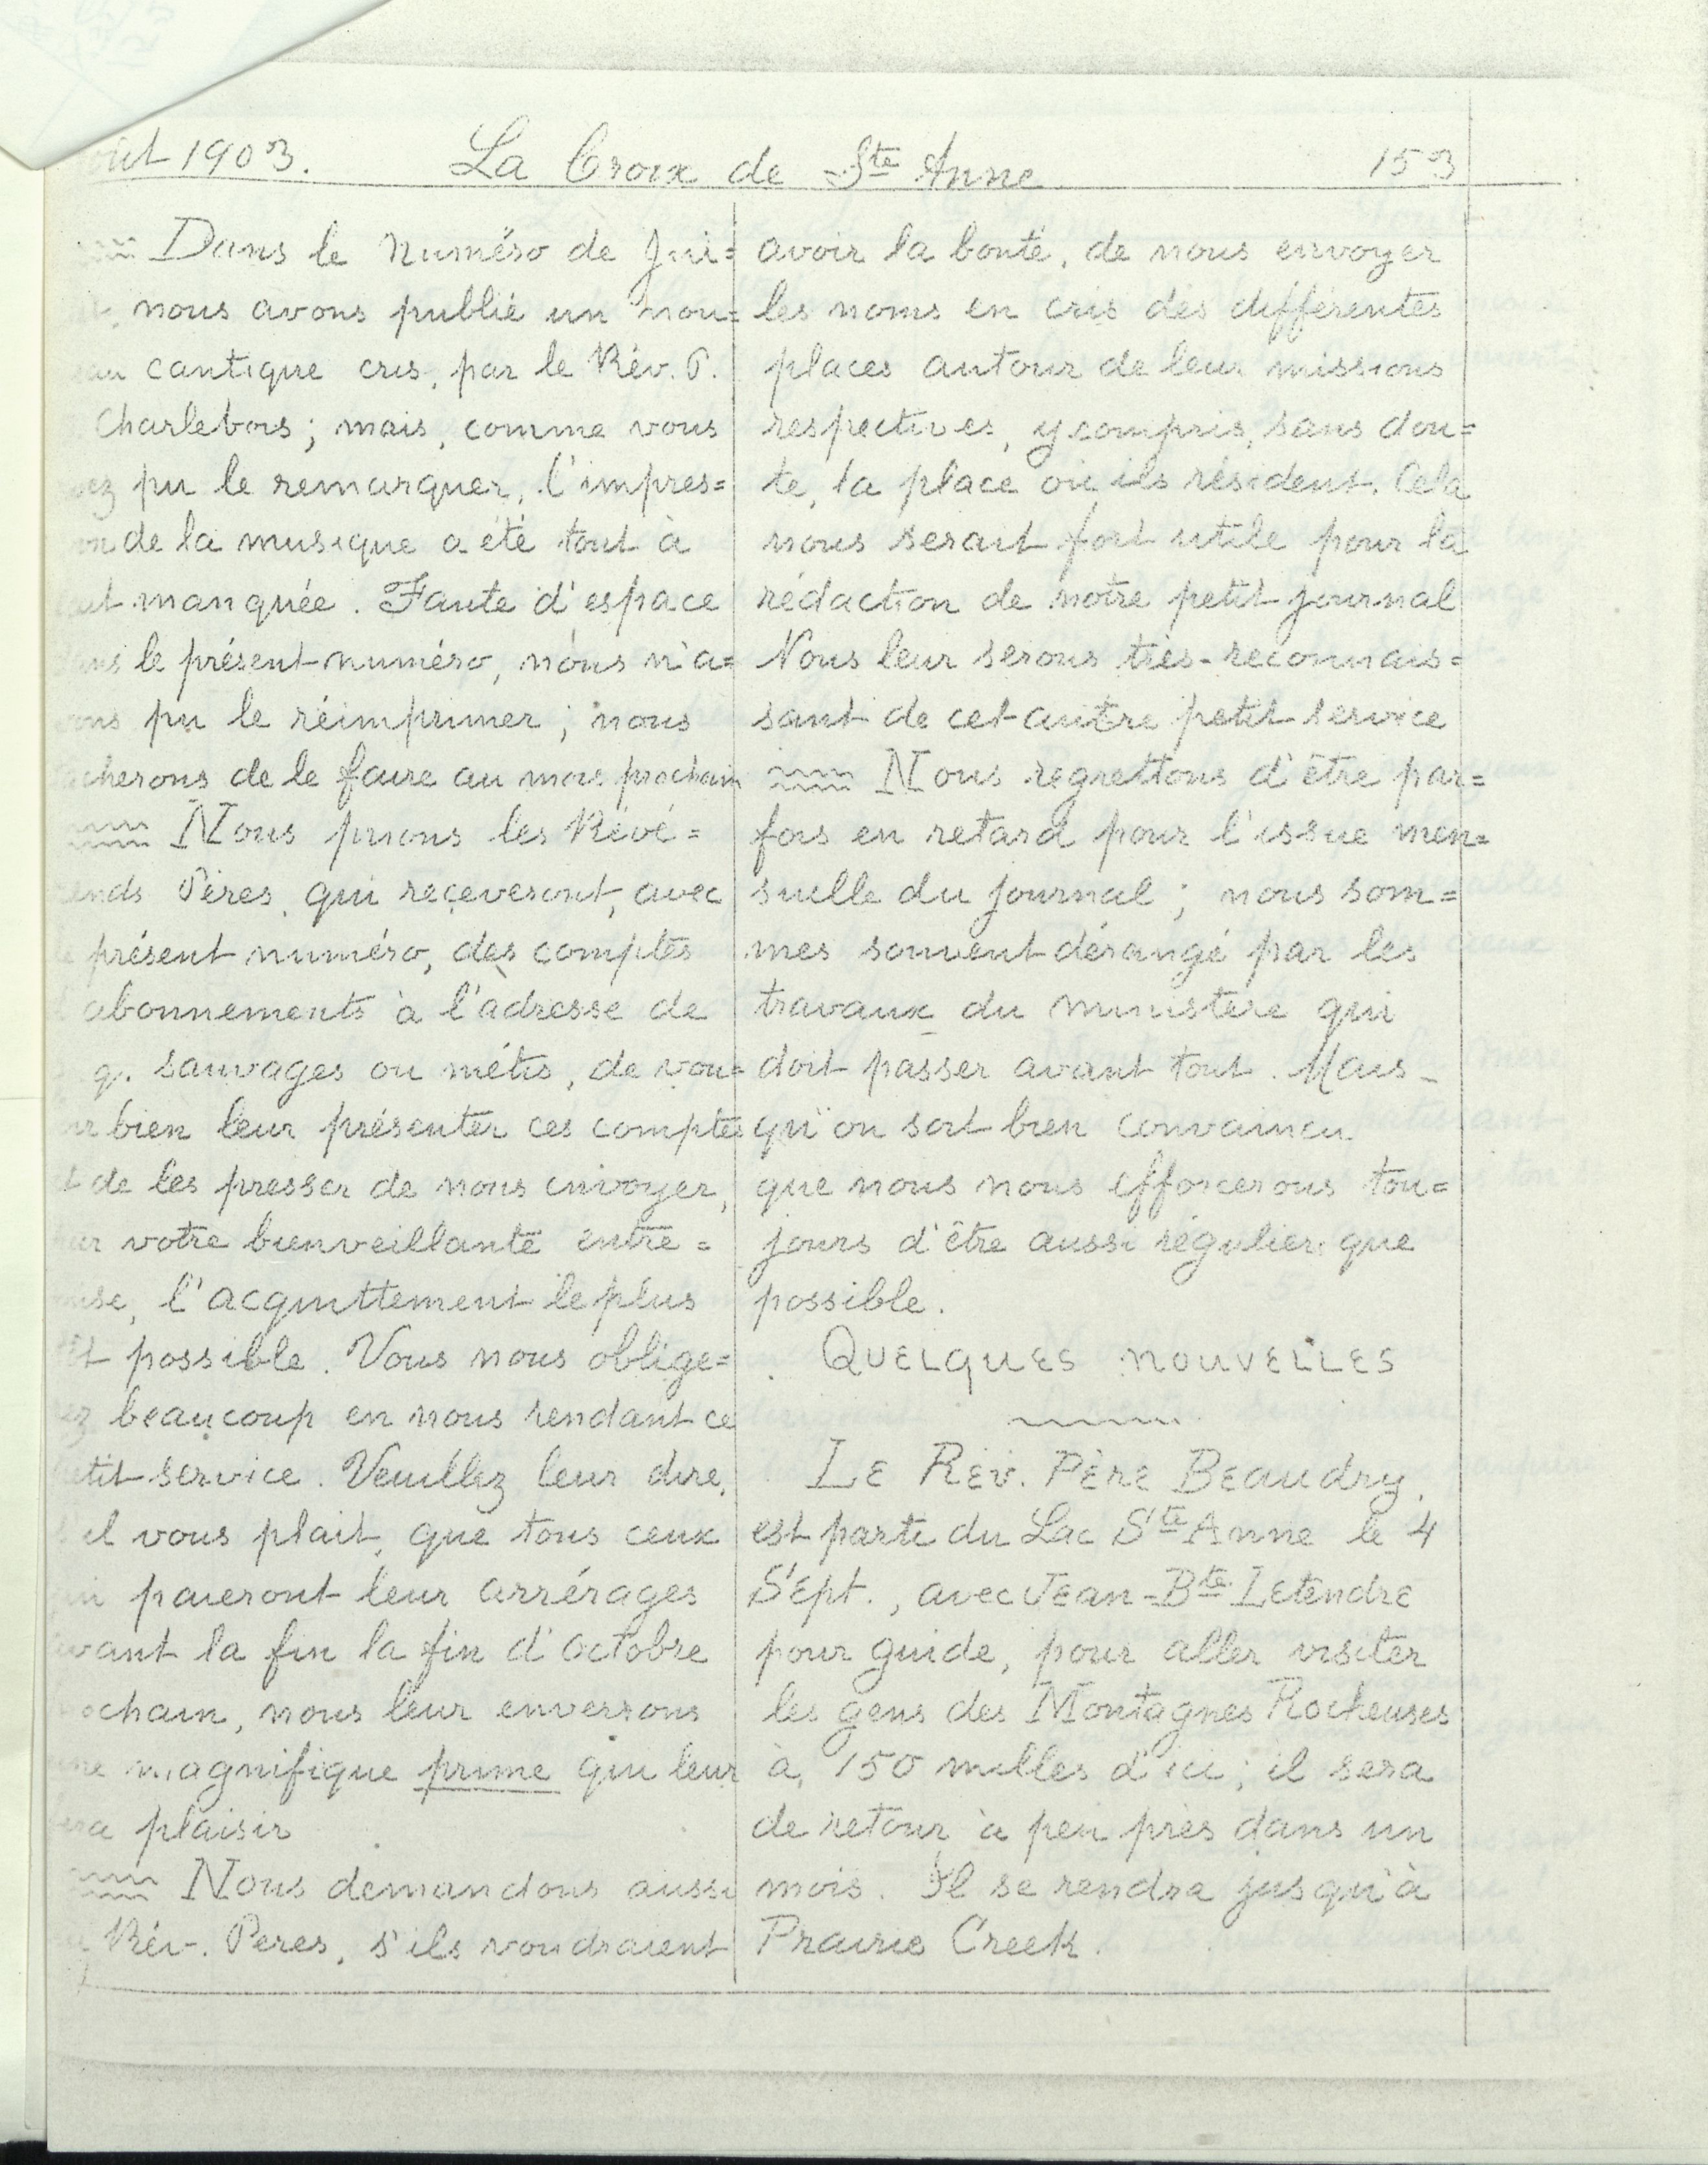 oût 1903. La Croix de Ste Anne 153
Dans le Numéro de Jui=
nous avons publié un nou=
au cantique cris, par le Rév. P.
Charlebois; mais, comme vous
ez pu le remarquer, l'impres=
on de la musique a été tout à
ait manquée. Faute d'espace
ans le présent numéro, nous n'a=
ons pu le réimprimer; nous
acherons de le faire au mois prochain
Nous prions les Révé=
ends Pères, qui reçeveront, avec
e présent numéro, des comptes
abonnements à l'adresse de
q. sauvages ou métis, de vou=
ir bien leur présenter ces comptes
t de les presser de nous envoyer,
ar votre bienveillante entre=
ise, l'acquittement le plus
ôt possible. Vous nous oblige=
ez beaucoup en nous rendant ce
etit service. Veuillez leur dire,
il vous plait, que tous ceux
ui paieront leur arrérages
vant la fin la fin d'octobre
ochain, nous leur enverrons
ne magnifique prime qui leur
era plaisir
Nous demandons aussi
Rév. Peres, s'ils voudraient
avoir la bonté, de nous envoyer
les noms en cris des différentes
places autour de leur missions
respectives, y compris, sans dou=
te, la place où ils résident. Cela
nous serait fort utile pour la
rédaction de notre petit journal
Nous leur serons très-reconnais=
sant de cet autre petit service
Nous regrettons d'être par=
fois en retard pour l'issue men=
suelle du journal; nous som=
mes souvent dérangé par les
travaux du ministère qui
doit passer avant tout. Mais
qu'on soit bien convaincu
que nous nous efforcerons tou=
jours d'être aussi régulier que
possible.
QUELQUES NOUVELLES
LE Rév. PÈRE BEaudry,
est parti du Lac Ste Anne le 4
SEpt., avec JEan-Bte LEtEndre
pour guide, pour aller visiter
les gens des Montagnes Rocheuses
à 150 milles d'ici; il sera
de retour à peu près dans un
mois. Il se rendra jusqu'à
Prairie Creek.